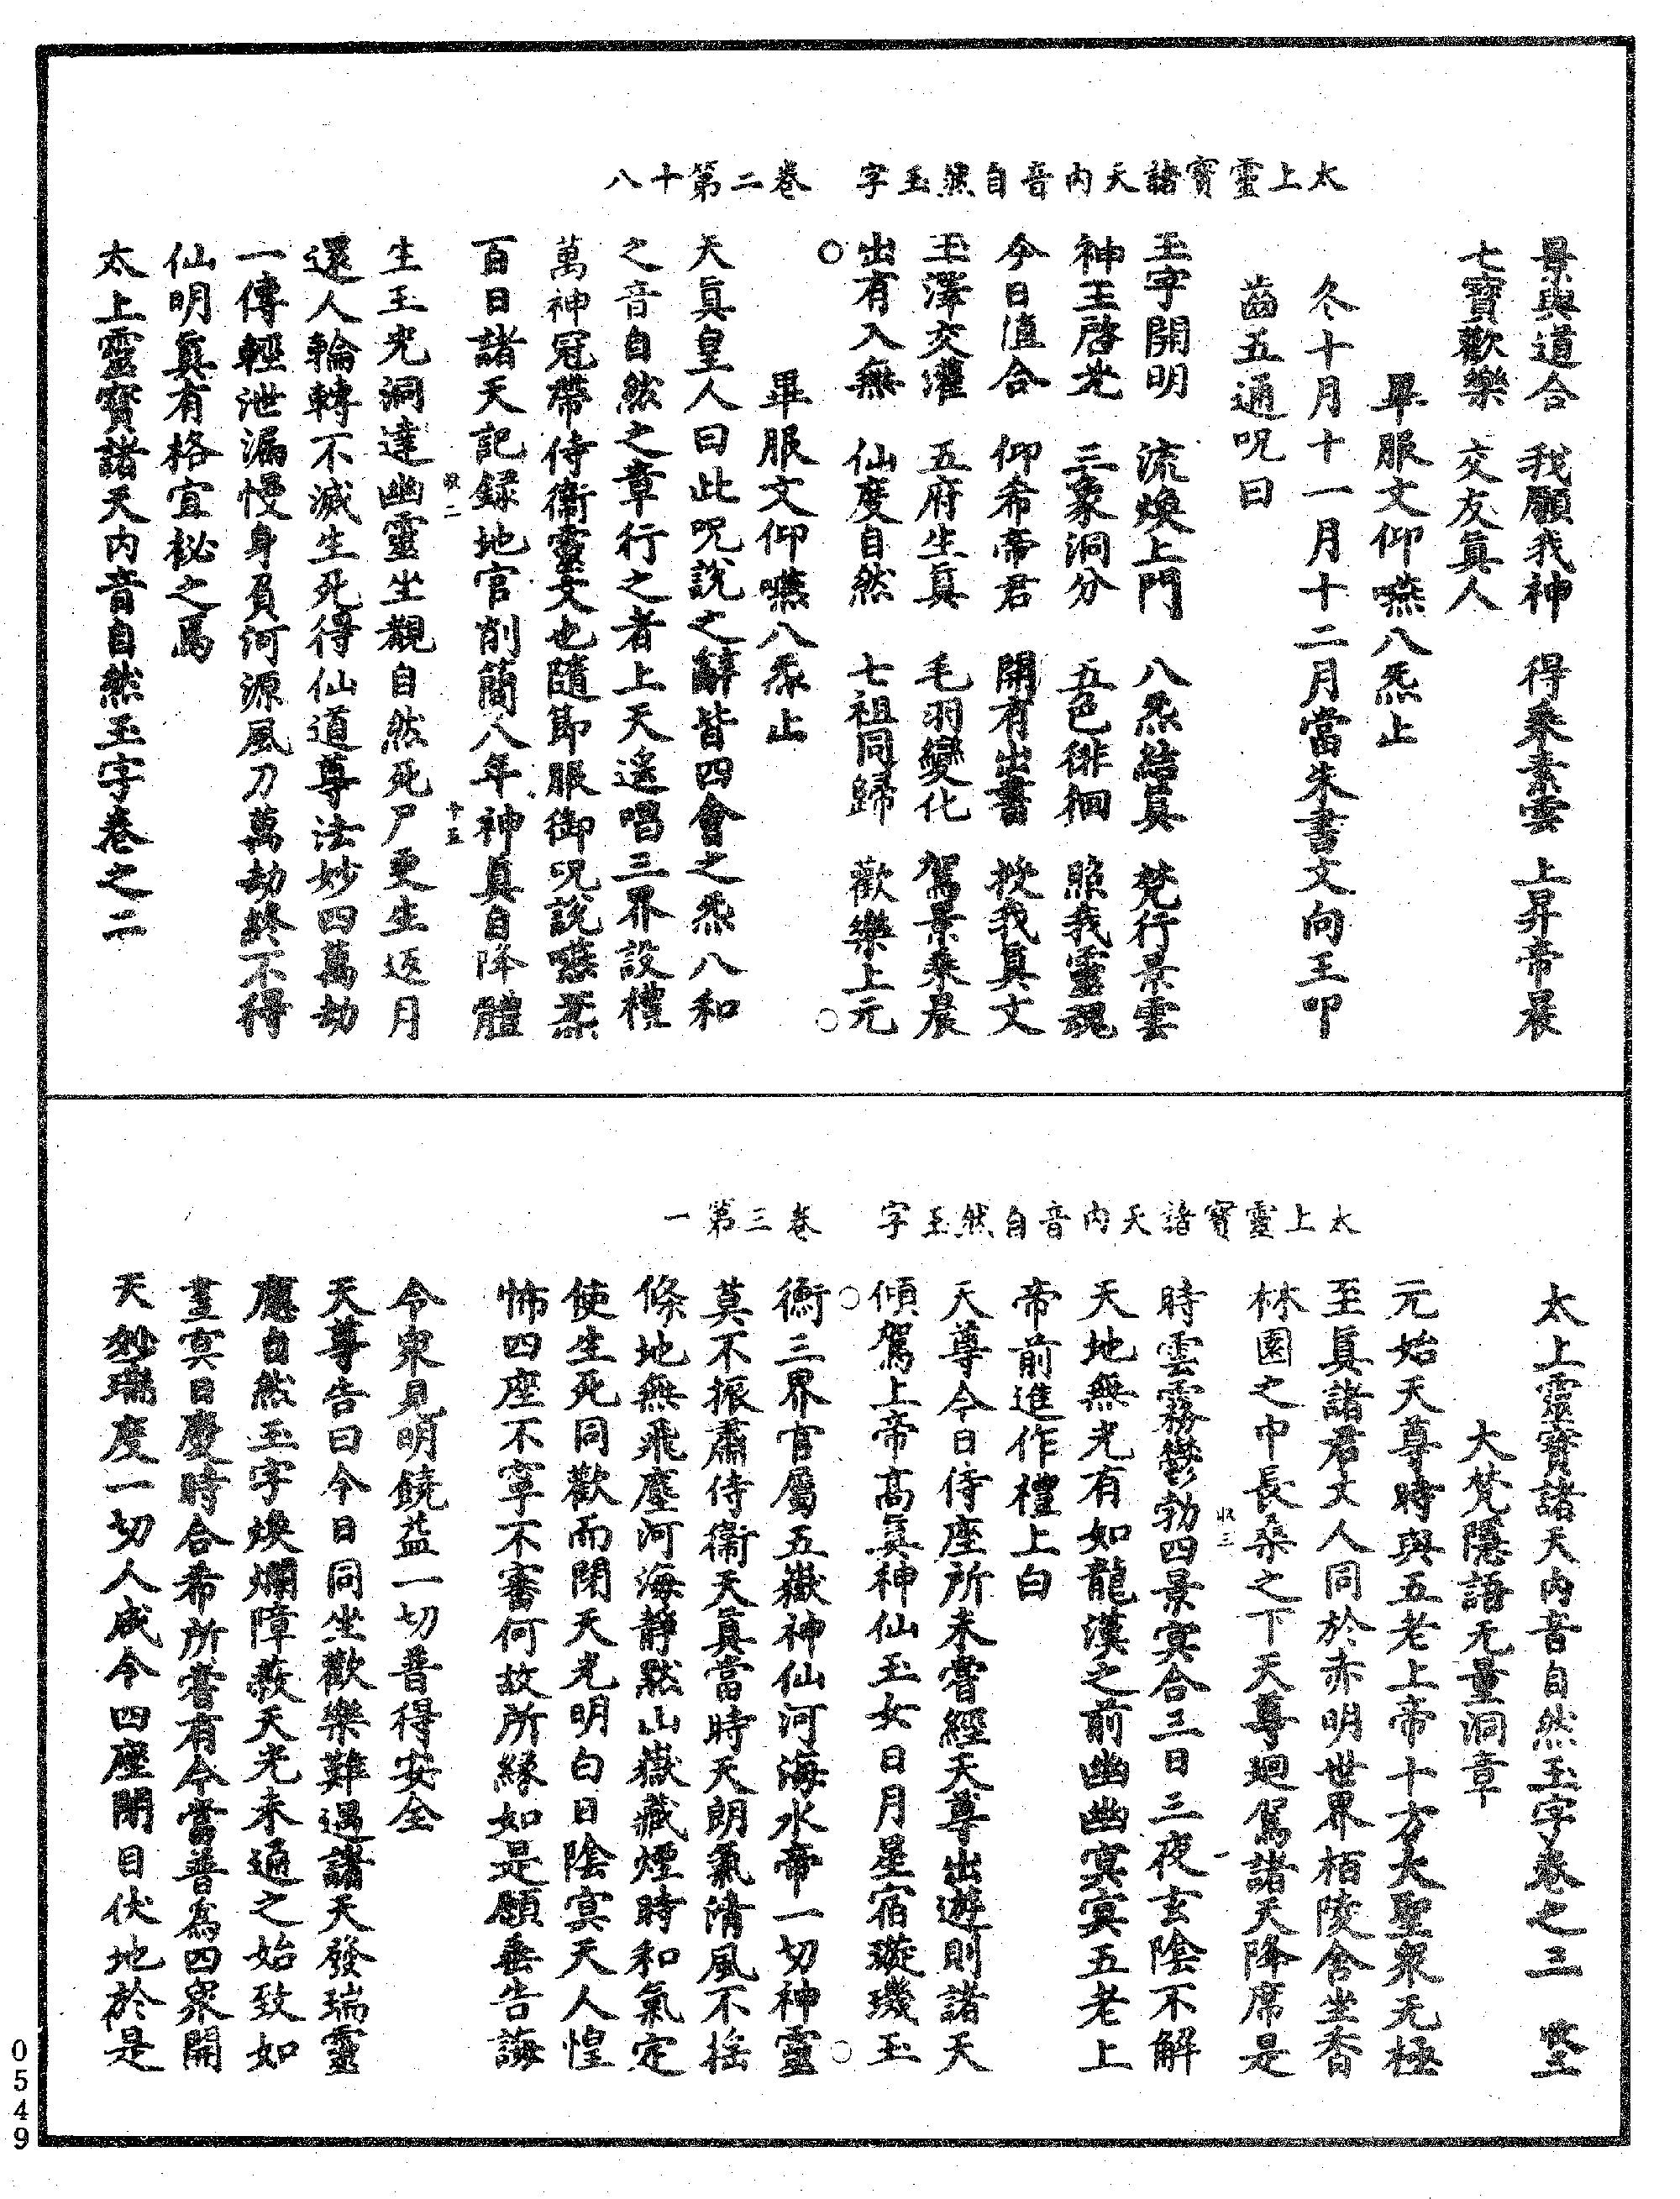 太上靈寶諸天內音自然玉字　卷二第十八
景與道合　我願我神　得乘素雲　上昇帝晨
七寶歡樂　交友眞人
畢服文仰嚥八炁止
冬十月十一月十二月當朱書文向王叩
齒五通呪曰
玉字開明　流煥上門　八炁結眞　梵行景雲
神王啓光　三象洞分　五色徘徊　照我靈魂
今日值合　仰希帝君　開有出書　授我眞文
玉澤交灌　五府生眞　毛羽變化　駕景乘晨
出有入無　仙度自然　七祖同歸　歡樂上元
畢服文仰嚥八炁止
天眞皇人曰此呪說之辭皆四會之炁八和
之音自然之章行之者上天遙唱三界設禮
萬神冠帶侍衞靈文也隨節服御呪說嚥炁
百日諸天記錄地官削簡八年神眞自降體
收二　十五
生玉光洞達幽靈坐觀自然死尸更生返月
還人輪轉不滅生死得仙道尊法妙四萬劫
一傳輕泄漏慢身負河源風刀萬劫終不得
仙明眞有格宜祕之焉
太上靈寶諸天內音自然玉字卷之二
太上靈寶諸天內音自然玉字　卷三第一
太上靈寶諸天內音自然玉字卷之三
大梵隱語无量洞章
元始天尊時與五老上帝十方大聖眾无極
至眞諸君丈人同於赤明世界栢陵舍坐香
林園之中長桑之下天尊廻駕諸天降席是
收三　一
時雲霧鬱勃四景冥合三日三夜玄陰不解
天地無光有如龍漢之前幽幽冥冥五老上
帝前進作禮上白
天尊今日侍座所未嘗經天尊出遊則諸天
傾駕上帝高眞神仙玉女日月星宿璇璣玉
衡三界官屬五嶽神仙河海水帝一切神靈
莫不振肅侍衞天眞當時天朗氣清風不搖
條地無飛塵河海靜默山嶽藏煙時和氣定
使生死同歡而閉天光明白日陰冥天人惶
怖四座不寧不審何故所緣如是願垂告誨
令衆見明饒益一切普得安全
天尊告曰今日同坐歡樂難遇諸天發瑞靈
應自然玉字煥爛障蔽天光未通之始致如
晝冥日慶時合希所嘗有今當普爲四衆開
天妙瑞度一切人咸令四座閉目伏地於是
0549